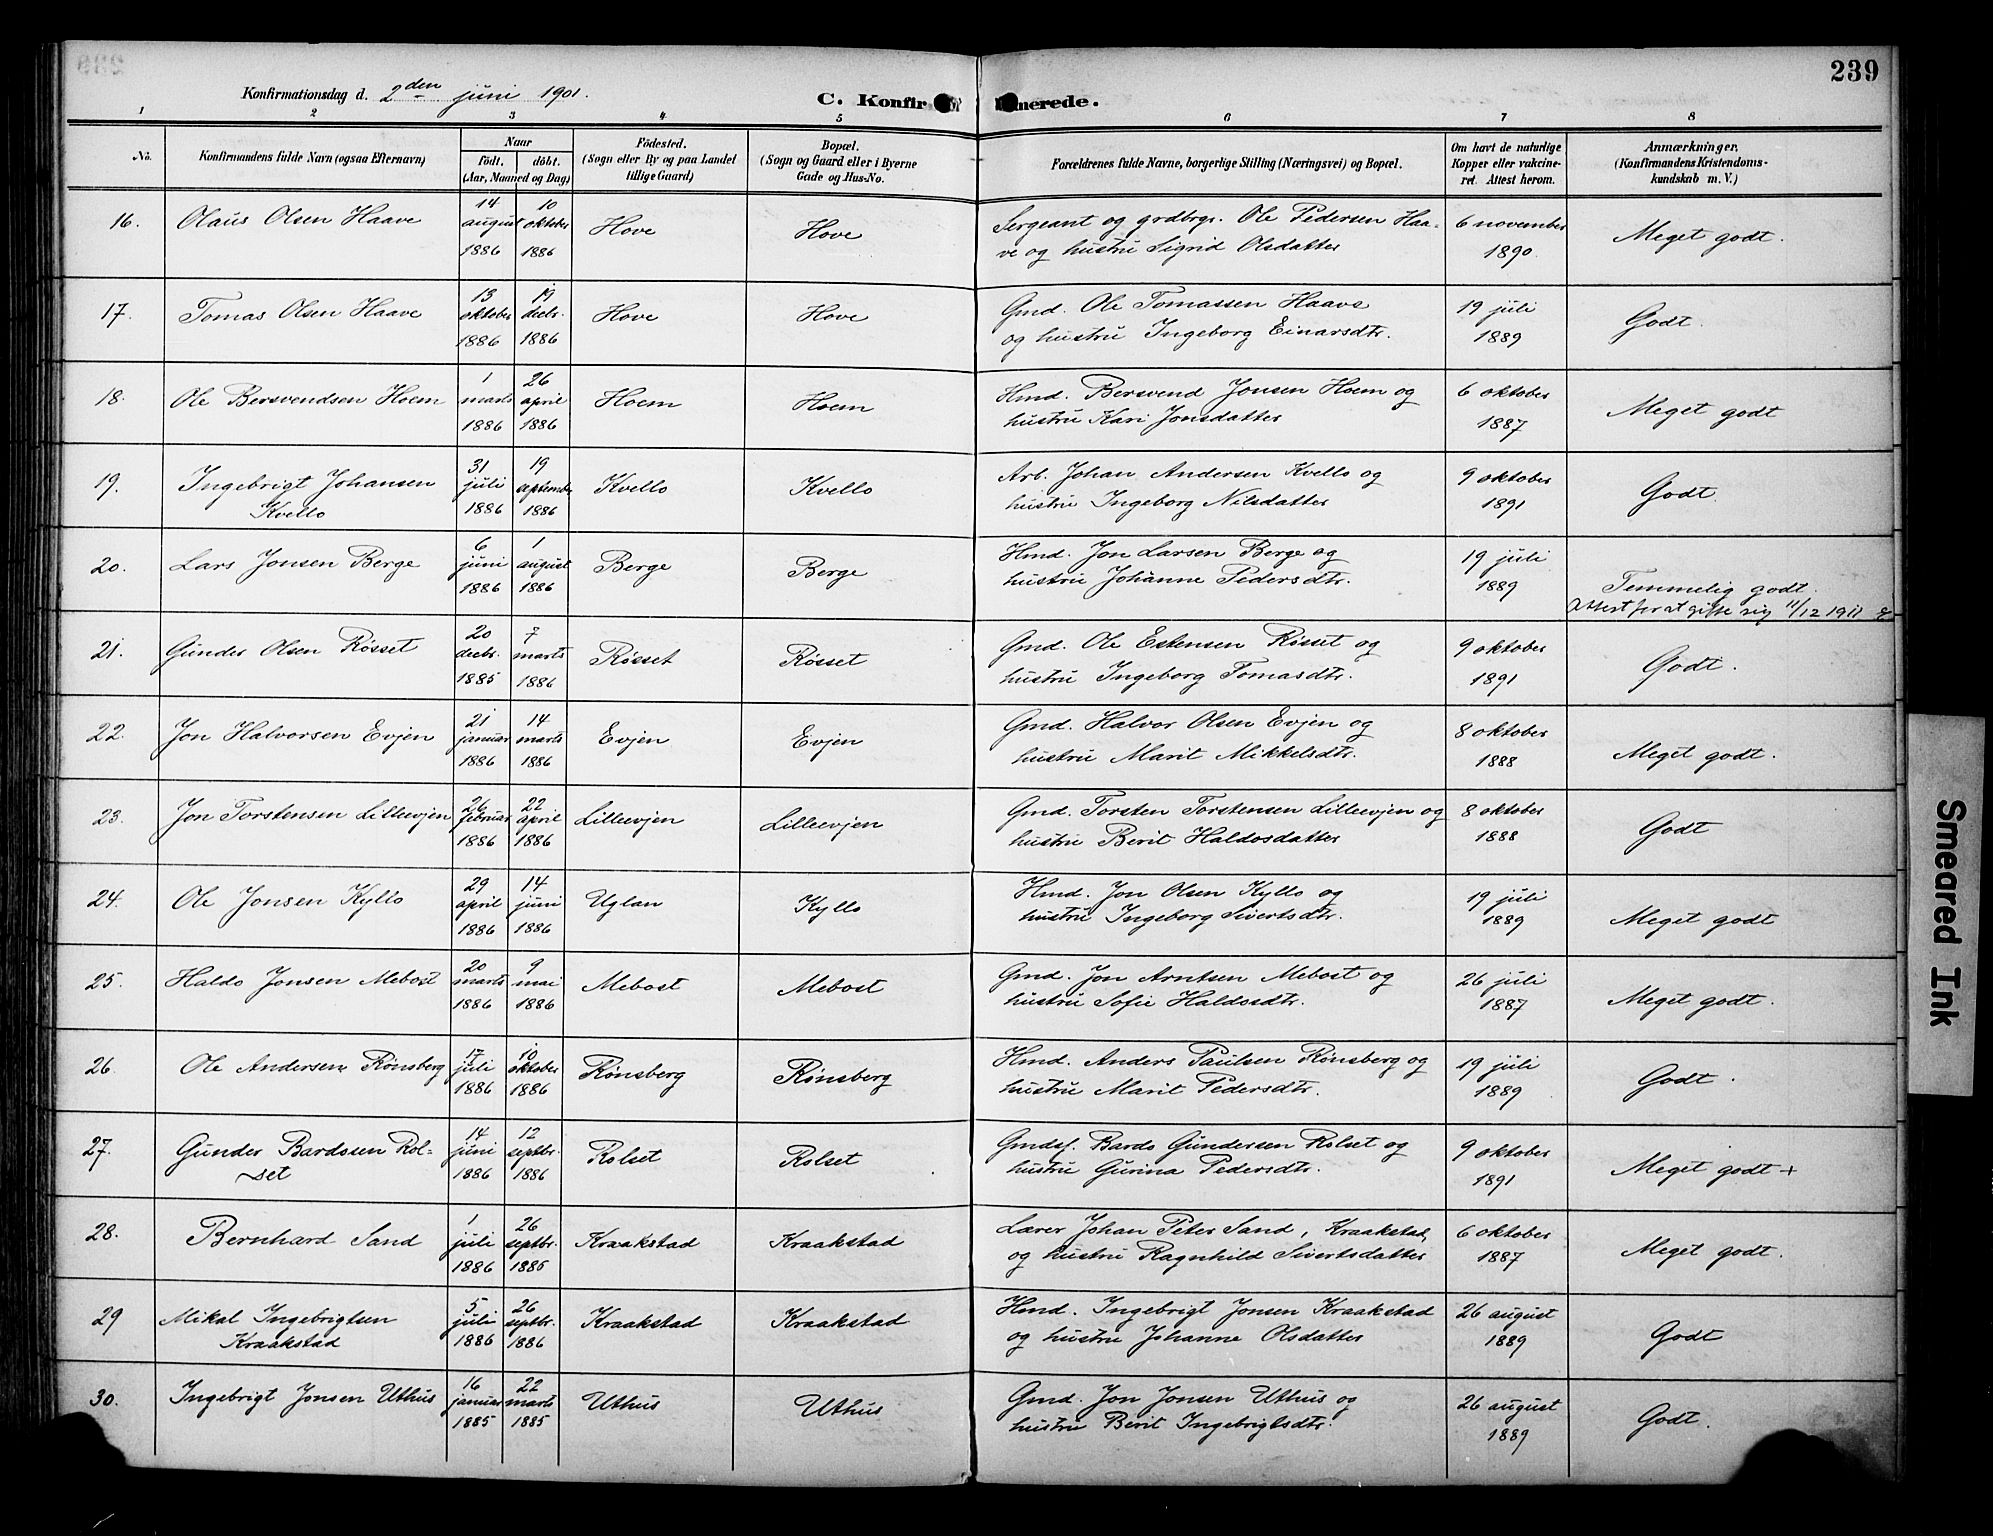 239
Konfirmationsdag d. 2den juni 1901.
C. Konfirmerede.
1 2 3 4 5 6 7 8
No.
Konfirmandens fulde Navn (ogsaa Efternavn)
Naar
födt. döbt.
(Aar, Maaned og Dag)
Födested.
(Sogn eller By og paa Landet
tillige Gaard)
Bopæl.
(Sogn og Gaard eller i Byerne
Gade og Hus-No.
Forældrenes fulde Navne, borgerlige Stilling (Næringsvei) og Bopæl.
Om havt de naturlige
Kopper eller vakcine-
ret. Attest herom.
Anmærkninger.
(Konfirmandens Kristendoms-
kundskab m. V.)
16. Olaus Olsen Haave
14 august 1886
10 oktober 1886
Hove
Hove
Sergeant og grdbrgr. Ole Pedersen Haa-
ve og hustru Sigrid Olsdatter
6 november
1890
Meget godt.
17. Tomas Olsen Haave
13 oktober 1886
19 decbr. 1886
Hove
Hove
Gmd. Ole Tomassen Haave
og hustru Ingeborg Einarsdtr.
19 juli
1889
Godt.
18. Ole Bersvendsen Hoem
1 marts 1886
26 april 1886
Hoem
Hoem
Hmd. Bersvend Jonsen Hoem og
hustru Kari Jonsdatter
6 oktober
1887
Meget godt
19. Ingebrigt Johansen
Kvello
31 juli 1886
19 september 1886
Kvello
Kvello
Arb. Johan Andersen Kvello og
hustru Ingeborg Nilsdatter
9 oktober
1891
Godt.
20. Lars Jonsen Berge
6 juni 1886
1 august 1886
Berge
Berge
Hmd. Jon Larsen Berge og
hustru Johanne Pedersdtr.
19 juli
1889
Temmelig godt.
Attest for at gifte sig 11/12 1911
21. Gunder Olsen Røsset
20 decbr. 1885
7 marts 1886
Røsset
Røsset
Gmd. Ole Estensen Røsset og
hustru Ingeborg Tomasdtr.
9 oktober
1891
Godt.
22. Jon Halvorsen Evjen
21 januar 1886
14 marts 1886
Evjen
Evjen
Gmd. Halvor Olsen Evjen og
hustru Marit Mikkelsdtr.
8 oktober
1888
Meget godt.
23. Jon Torstensen Lilleevjen
26 februar 1886
22 april 1886
Lilleevjen
Lilleevjen
Gmd. Torsten Torstensen Lilleevjen og
hustru Berit Haldosdatter
8 oktober
1888
Godt
24. Ole Jonsen Kyllo
29 april 1886
14 juni 1886
Uglan
Kyllo
Hmd. Jon Olsen Kyllo og
hustru Ingeborg Sivertsdtr.
19 juli
1889
Meget godt
25. Haldo Jonsen Mebost
20 marts 1886
9 mai 1886
Mebost
Mebost
Gmd. Jon Arntsen Mebost og
hustru Sofie Haldosdtr.
26 juli
1887
Meget godt.
26. Ole Andersen Rønsberg
17 juli 1886
10 oktober 1886
Rønsberg
Rønsberg
Hmd. Anders Paulsen Rønsberg og
hustru Marit Pedersdtr.
19 juli
1889
Godt.
27. Gunder Bardosen Rol-
set
14 juni 1886
12 septbr. 1886
Rolset
Rolset
Gmdsf. Bardo Gundersen Rolset og
hustru Gurina Pedersdtr.
9 oktober
1891
Meget godt +
28. Bernhard Sand
1 juli 1886
26 septbr. 1885
Kraakstad
Kraakstad
Lærer Johan Peter Sand, Kraakstad,
og hustru Ragnhild Sivertsdatter
6 oktober
1887
Meget godt.
29 Mikal Ingebrigtsen
Kraakstad
5 juli 1886
26 septbr. 1886
Kraakstad
Kraakstad
Hmd. Ingebrigt Jonsen Kraakstad
og hustru Johanne Olsdatter
26 august
1889
Godt
30. Ingebrigt Jonsen Uthus
16 januar 1885
22 marts 1885
Uthus
Uthus
Gmd. Jon Jonsen Uthus og
hustru Berit Ingebrigtsdtr.
26 august
1889
Godt.
Smeared Ink